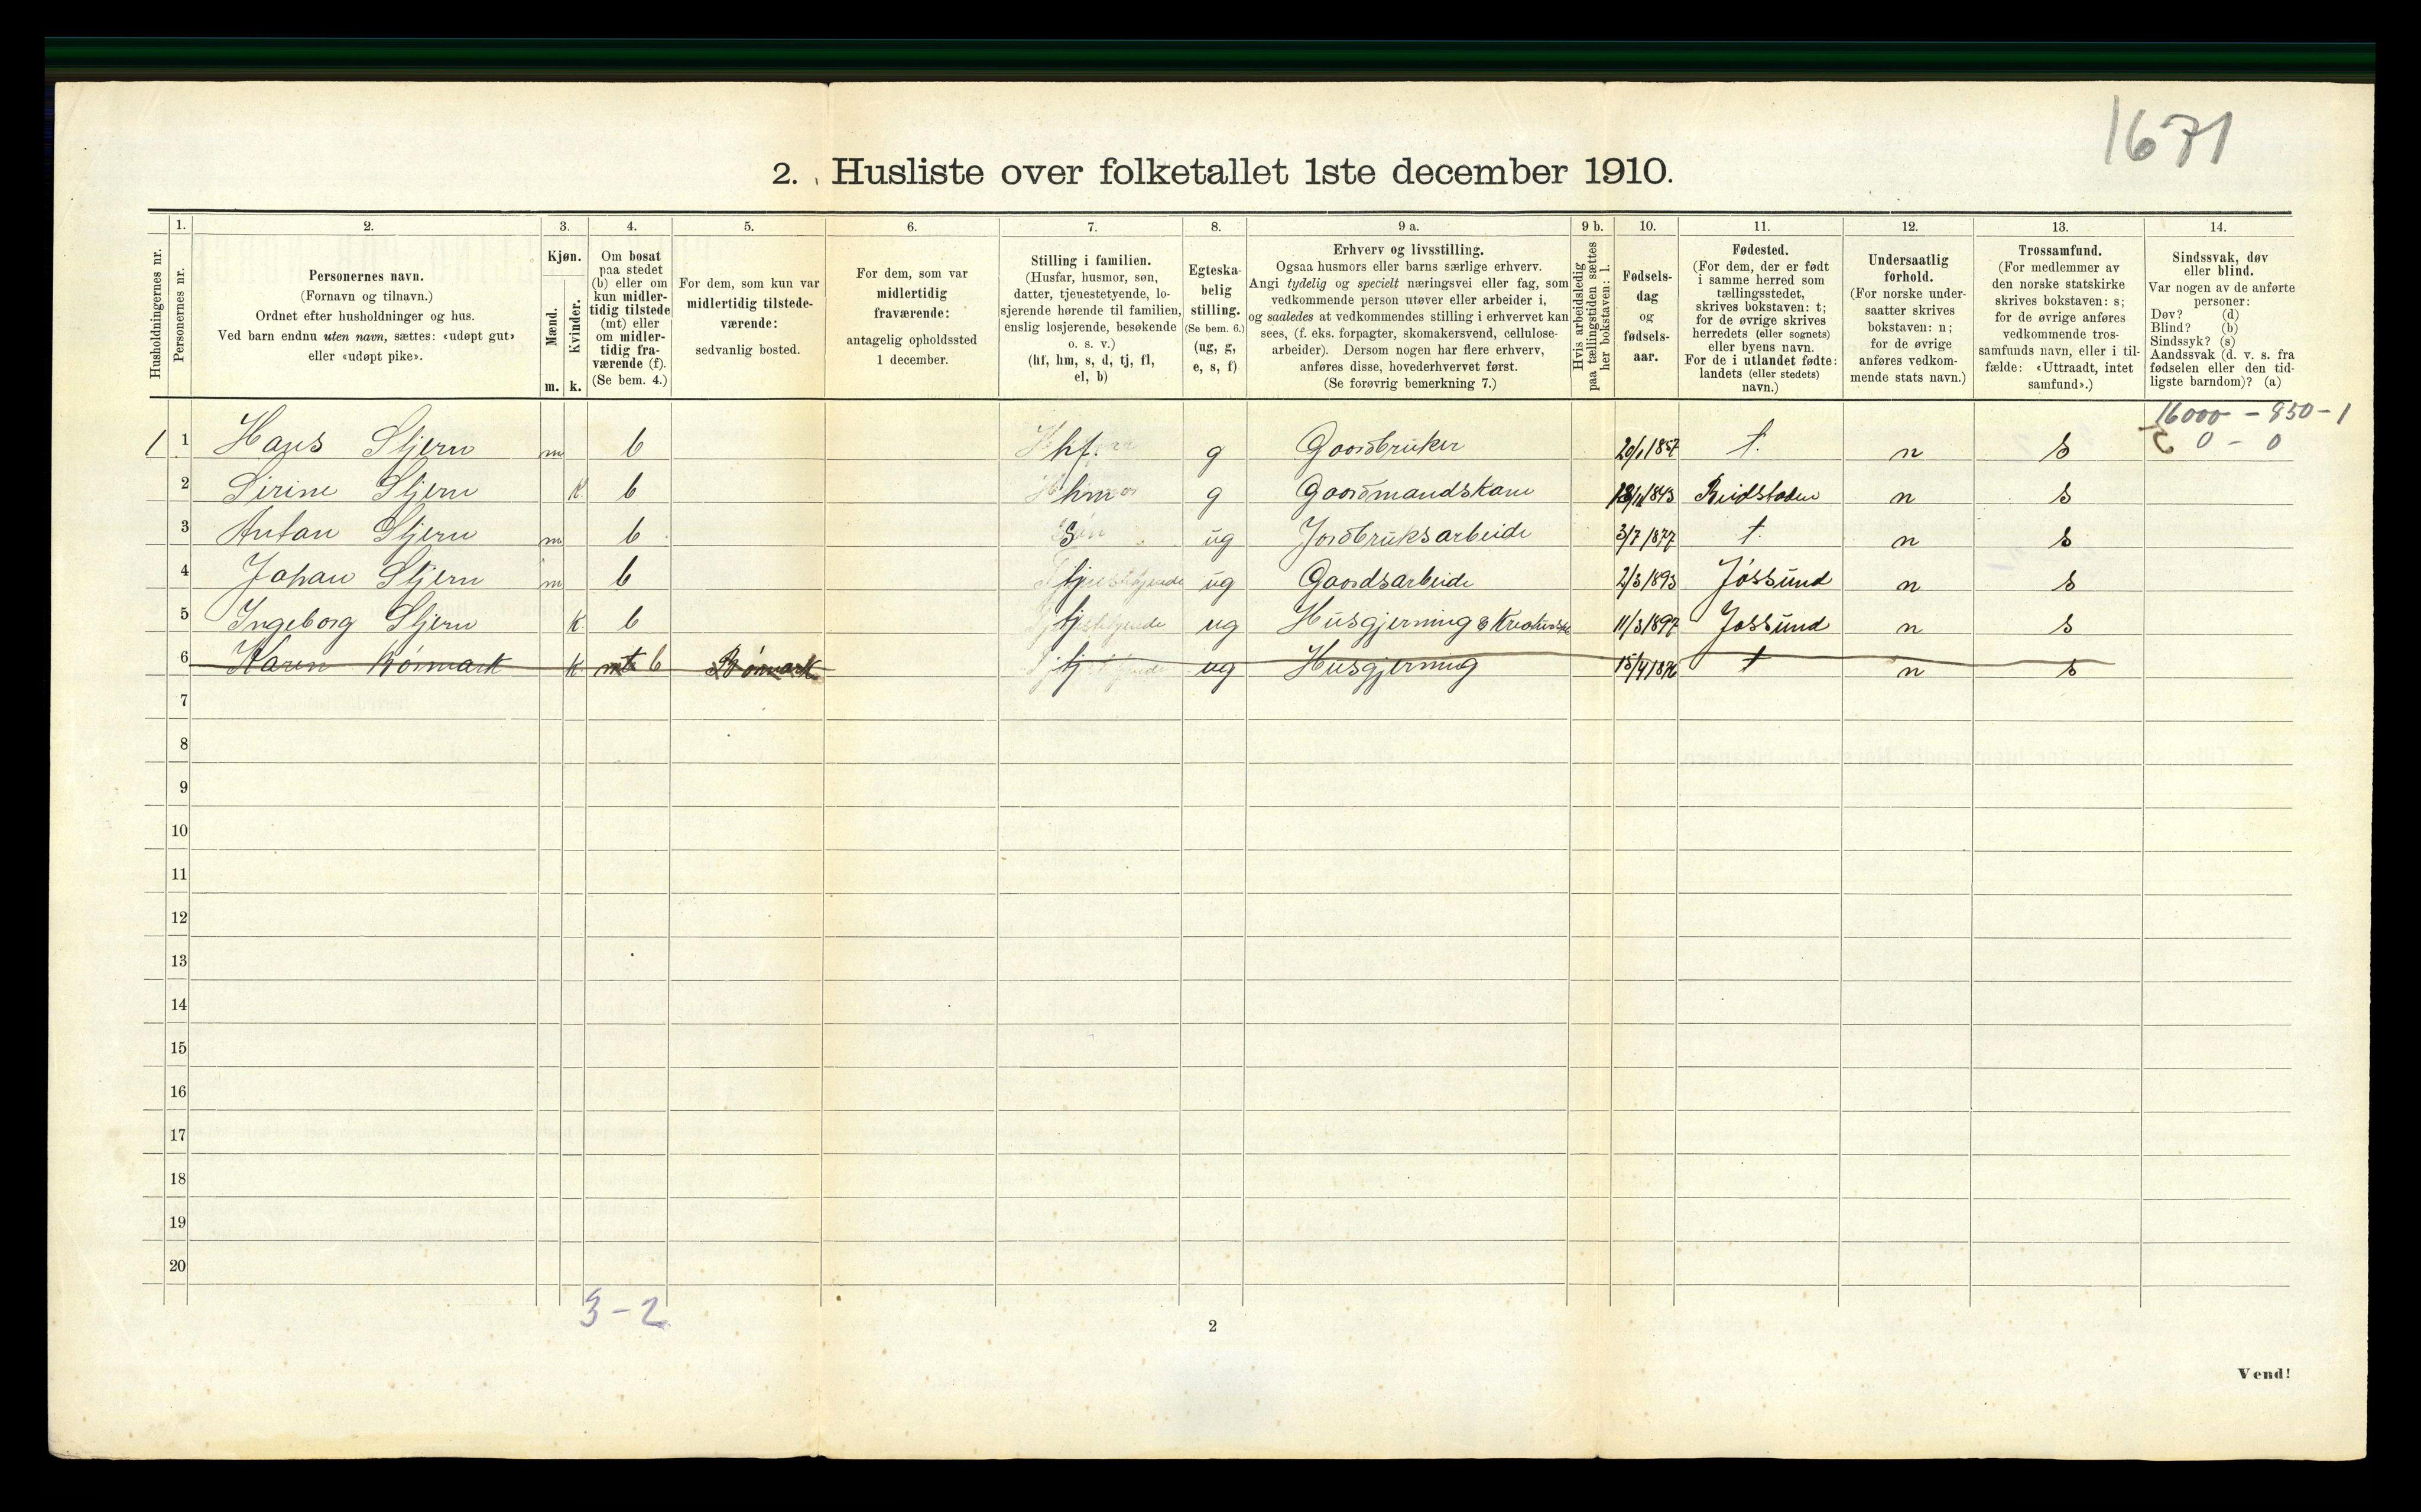 1671
2. Husliste over folketallet 1ste december 1910.
1. 2. 3. 4. 5. 6. 7. 8. 9 a. 9 b. 10. 11. 12. 13. 14.
Husholdningernes nr.
Personernes nr.
Personernes navn.
(Fornavn og tilnavn.)
Ordnet efter husholdninger og hus.
Ved barn endnu uten navn, sættes: «udøpt gut»
eller «udøpt pike».
Kjøn.
Mænd.
Kvinder.
m. k.
Om bosat
paa stedet
(b) eller om
kun midler-
tidig tilstede
(mt) eller
om midler-
tidig fra-
værende (f).
(Se bem. 4.)
For dem, som kun var
midlertidig tilstede-
værende:
sedvanlig bosted.
For dem, som var
midlertidig
fraværende:
antagelig opholdssted
1 december.
Stilling i familien.
(Husfar, husmor, søn,
datter, tjenestetyende, lo-
sjerende hørende til familien,
enslig losjerende, besøkende
o. s. v.)
(hf, hm, s, d, tj, fl,
el, b)
Egteska-
belig
stilling.
(Se bem. 6.)
(ug, g,
e, s, f)
Erhverv og livsstilling.
Ogsaa husmors eller barns særlige erhverv.
Angi tydelig og specielt næringsvei eller fag, som
vedkommende person utøver eller arbeider i,
og saaledes at vedkommendes stilling i erhvervet kan
sees, (f. eks. forpagter, skomakersvend, cellulose-
arbeider). Dersom nogen har flere erhverv,
anføres disse, hovederhvervet først.
(Se forøvrig bemerkning 7.)
Hvis arbeidsledig
paa tællingstiden sættes
her bokstaven: l.
Fødsels-
dag
og
fødsels-
aar.
Fødested.
(For dem, der er født
i samme herred som
tællingsstedet,
skrives bokstaven: t;
for de øvrige skrives
herredets (eller sognets)
eller byens navn.
For de i utlandet fødte:
landets (eller stedets)
navn.)
Undersaatlig
forhold.
(For norske under-
saatter skrives
bokstaven: n;
for de øvrige
anføres vedkom-
mende stats navn.)
Trossamfund.
(For medlemmer av
den norske statskirke
skrives bokstaven: s;
for de øvrige anføres
vedkommende tros-
samfunds navn, eller i til-
fælde: «Uttraadt, intet
samfund».)
Sindssvak, døv
eller blind.
Var nogen av de anførte
personer:
Døv? (d)
Blind? (b)
Sindssyk? (s)
Aandssvak (d. v. s. fra
fødselen eller den tid-
ligste barndom)? (a)
16000 - 850 - 1
0 - 0
1 1 Hans Stjern m b hf. g Gaardbruker 20/1 1857 t. n s
2 Sirine Stjern k b hm g Gaardmandskone 1843 n s
3 Anton Stjern m b s ug Jordbruksarbeide 3/7 1877 t. n s
4 Johan Stjern m b tj ug Gaardsarbeide 2/3 1893 Jøssund n s
5 Ingeborg Stjern k b tj ug Husgjerning & Kreaturstel 11/3 1897 Jøssund n s
6 Karen Rømark k mt b Rømark tj ug Husgjerning 15/4 t n s
7
8
9
10
11
12
13
14
15
16
17
18
19
20
3 - 2
2
Vend!